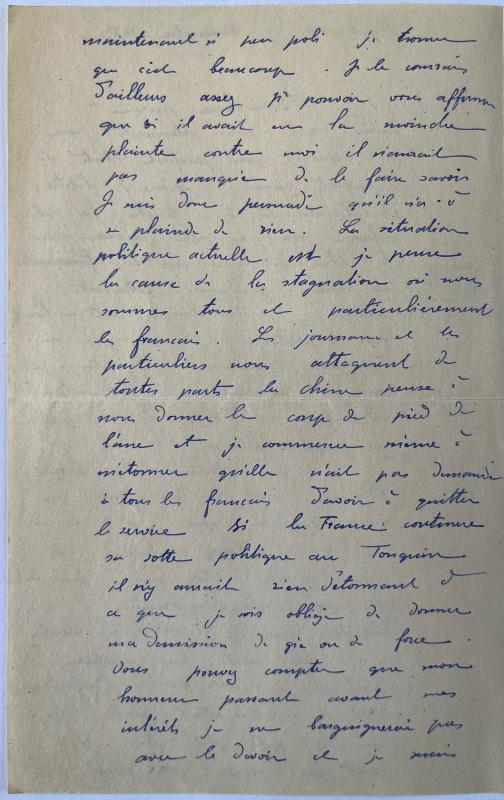 maintenant si peu poli je trouve
que c'est beaucoup. Je le connais
d'ailleurs assez pr pouvoir vous affirmer
que si il avait eu la moindre
plainte contre moi il n'aurait
pas manqué de le faire savoir
Je suis donc persuadé qu'il n'a à
se plaindre de rien. La situation
politique actuelle est je pense
la cause de la stagnation où nous
sommes tous et particulièrement
les français. Les journaux et les
particuliers nous attaquent de
toutes parts la chine pense à
nous donner le coup de pied de
l'âne et je commence même à
m'étonner qu'elle n'ait pas demandé
à tous les français d'avoir à quitter
le service. Si la France continue
sa sotte politique au Tonquin
il n'y aurait rien d'étonnant à
ce que je sois obligé de donner
ma démission de gré ou de force.
Vous pouvez compter que mon
honneur passant avant mes
intérêts je ne barguignerai pas
avec le devoir et je suis